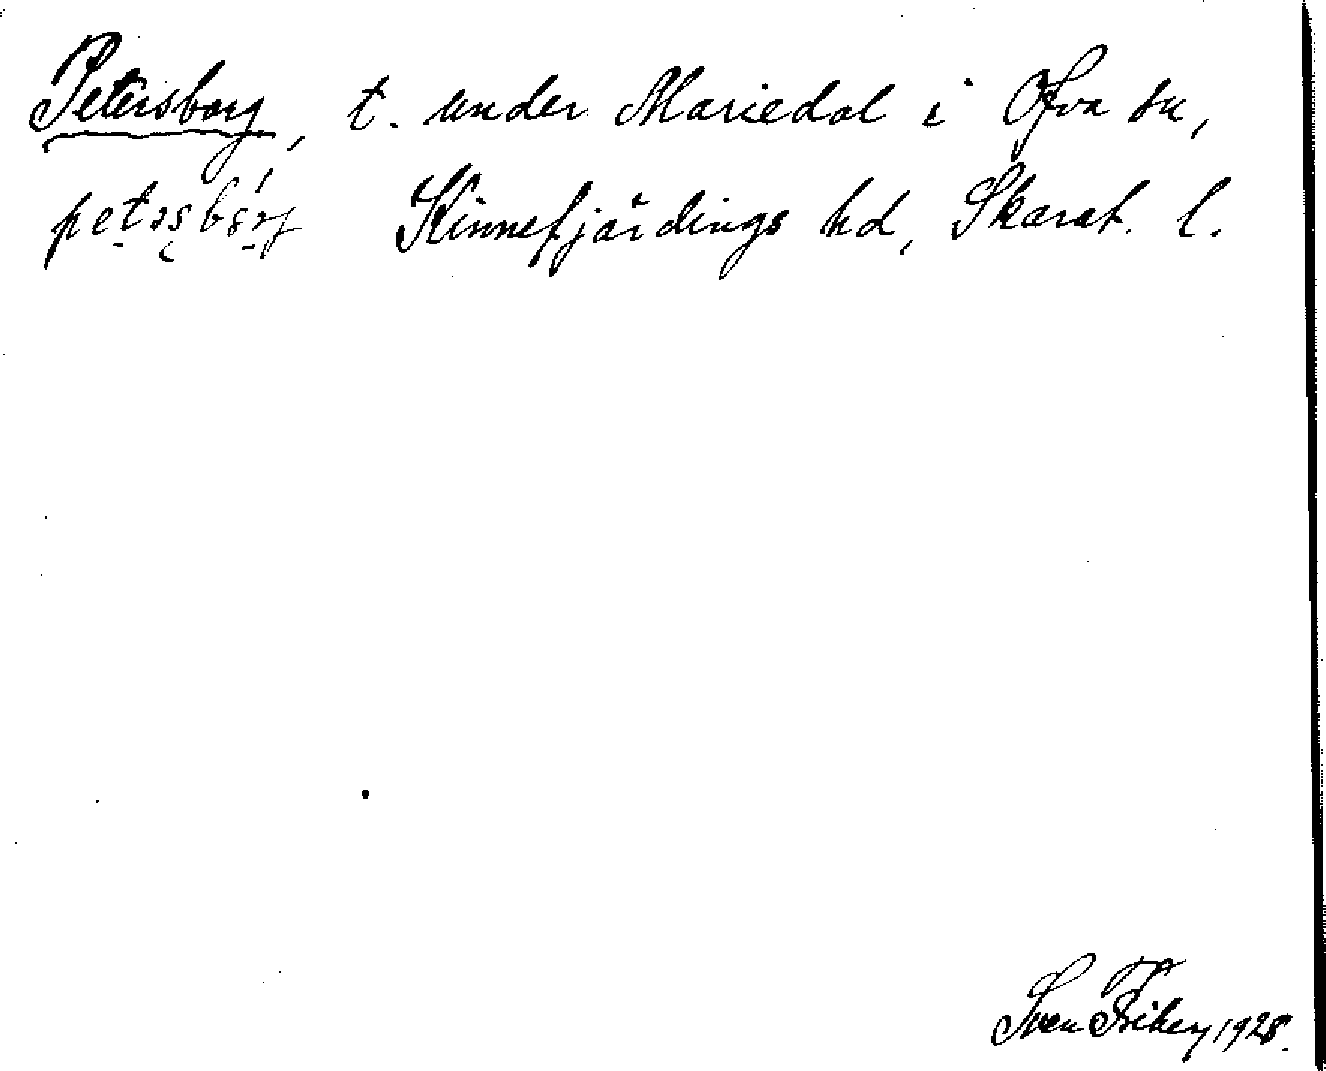 Petersborg, t. under Mariedal i Ofva sn,
Kinnefjärdings hd, Skarab. l.
Sven Friberg 1928.